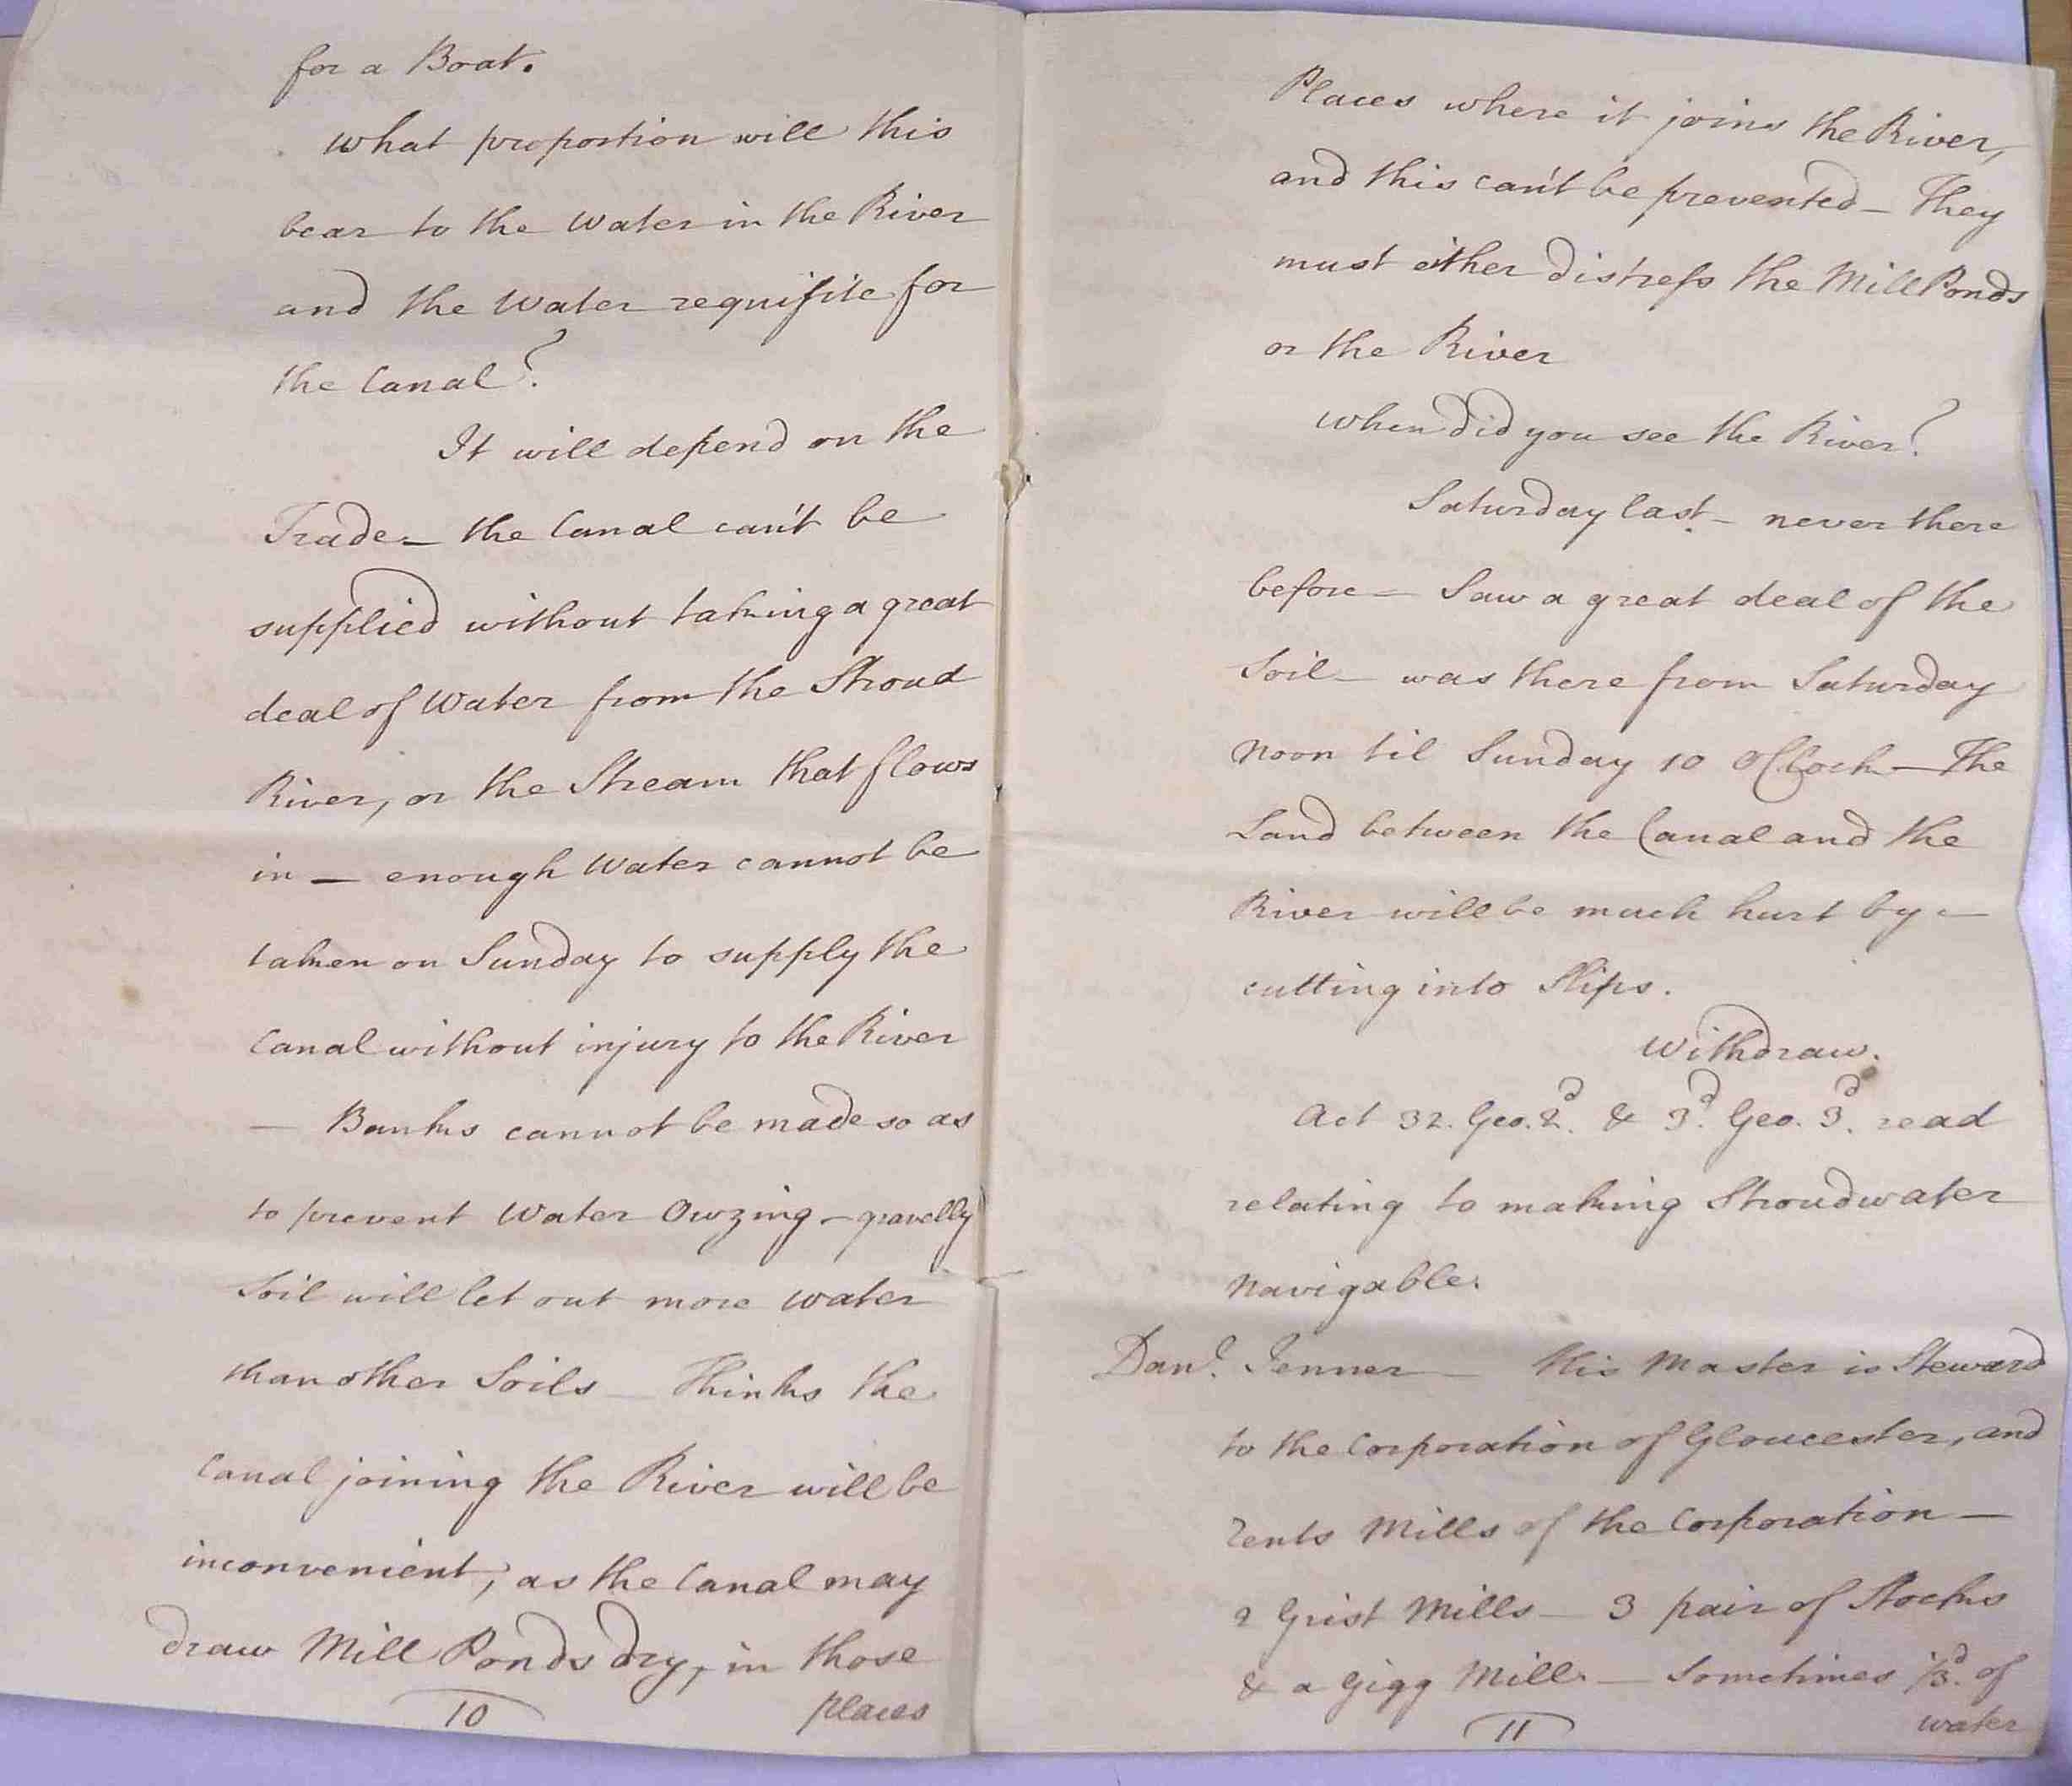 for a Boat.
What proportion will this
bear to the Water in the River
and the Water requisite for
the Canal?
It will depend on the
Trade – the Canal can't be
supplied without taking a great
deal of Water from the Stroud
River, or the Stream that flows
in – enough Water cannot be
taken on Sunday to supply the
Canal without injury to the River
– Banks cannot be made so as
to prevent Water Owzing – gravelly
Soil will let out more water
than other Soils – Thinks the
Canal joining the River will be
inconvenient, as the Canal may
draw Mill Ponds dry, in those
10
places
Places where it joins the River,
and this can't be prevented – They
must either distress the Mill Ponds
or the River
When did you see the River?
Saturday last – never there
before – Saw a great deal of the
Soil – was there from Saturday
Noon til Sunday 10 o'Clock – The
Land between the Canal and the
River will be much hurt by –
cutting into Slips.
Withdraw.
Act 32. Geo. 2.d & 3.d Geo. 3.d read
relating to making Stroudwater
Navigable.
Dan.l Jenner – His Master is Steward
to the Corporation of Gloucester, and
rents Mills of the Corporation –
2 Grist Mills – 3 pair of Stocks
& a Gigg Mill – Sometimes 1/3.d of
11
water